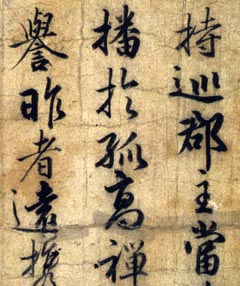 持巡郡主當
播於孤高禪
譽昨者遠携